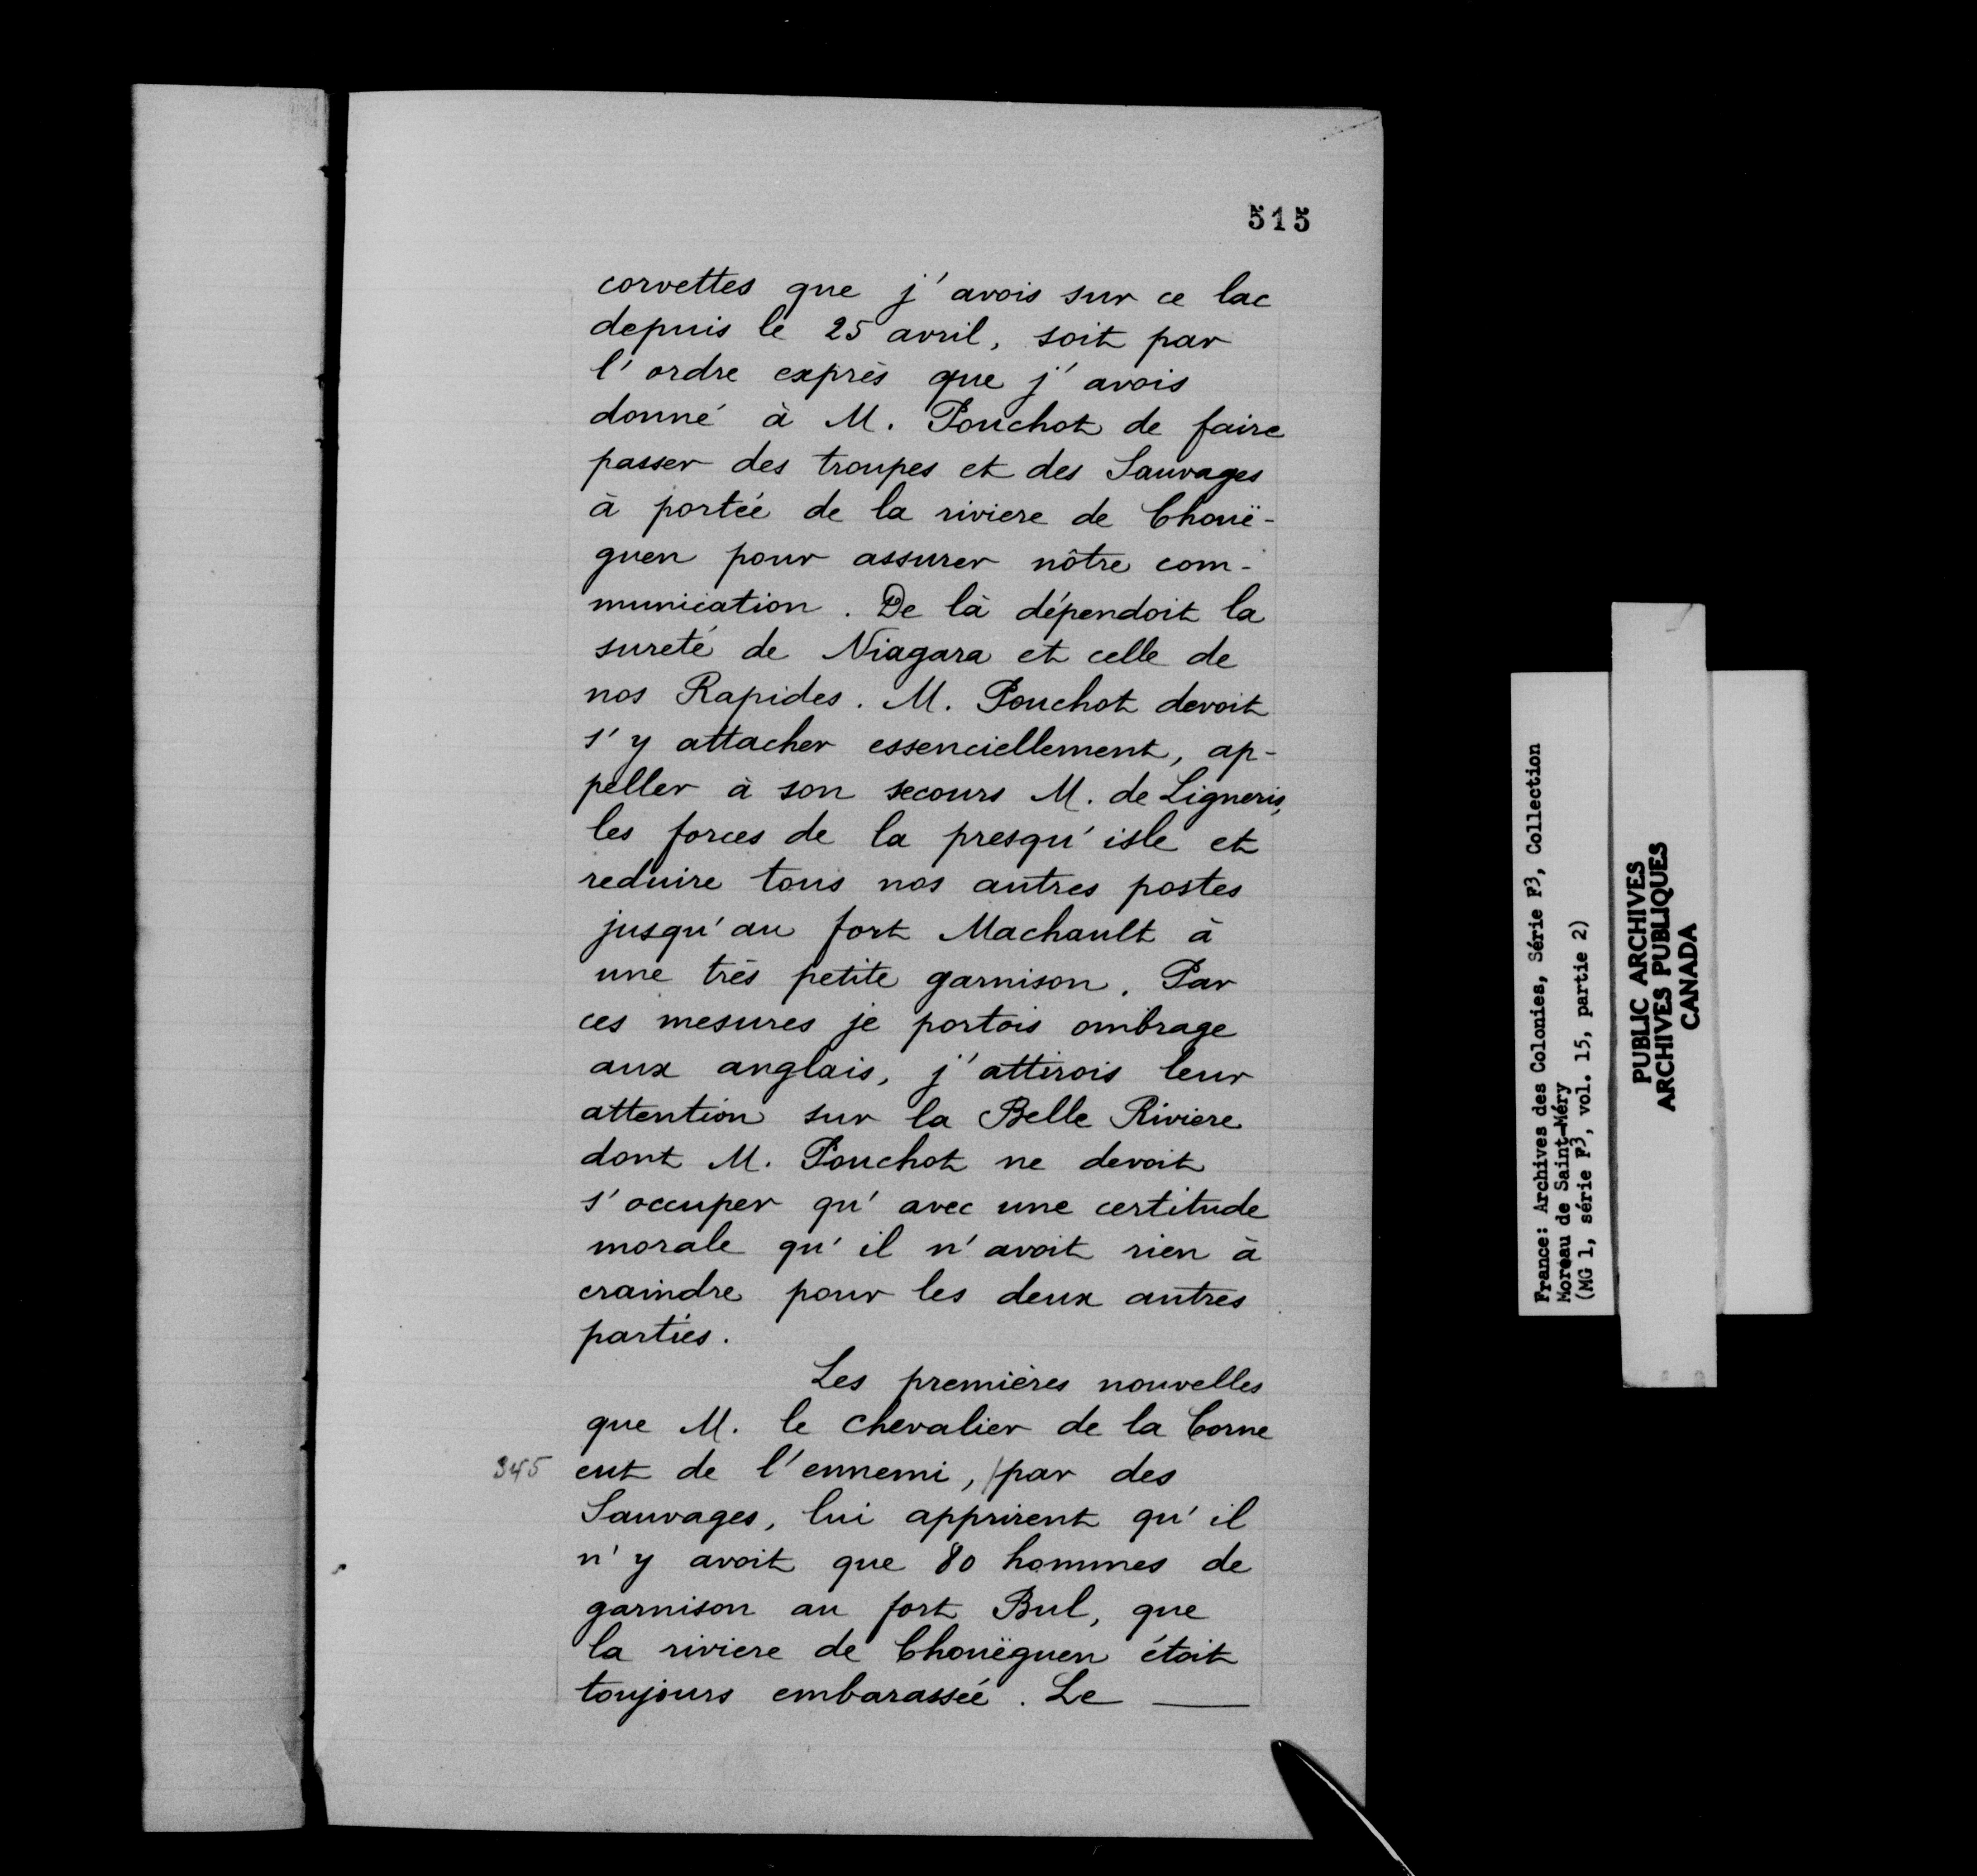 515
corvettes que j'avois sur ce lac
depuis le 25 avril, soit par
l'ordre exprès que j'avois
donné à M. Pouchot de faire
passer des troupes et des Sauvages
à portée de la riviere de Chouë-
guen pour assurer nôtre com-
munication. De là dépendoit la
sureté de Niagara et celle de
nos Rapides. M. Pouchot devoit
s'y attacher essenciellement, ap-
peller à son secours M. de Ligneris,
les forces de la presqu'isle et
reduire tous nos autres postes
jusqu'au fort Machault à
une très petite garnison. Par
ces mesures je portois ombrage
aux anglais, j'attirois leur
attention sur la Belle Riviere
dont M. Pouchot ne devoit
s'occuper qu'avec une certitude
morale qu'il n'avoit rien à
craindre pour les deux autres
parties.
Les premières nouvelles
que M. le chevalier de la Corne
345 eut de l'ennemi, /par des
Sauvages, lui apprirent qu'il
n'y avoit que 80 hommes de
garnison au fort Bul, que
la riviere de Chouëguen étoit
toujours embarassée. Le —
France: Archives des Colonies, Série F3, Collection
Moreau de Saint-Méry
(MG 1, série F3, vol. 15, partie 2)
PUBLIC ARCHIVES
ARCHIVES PUBLIQUES
CANADA